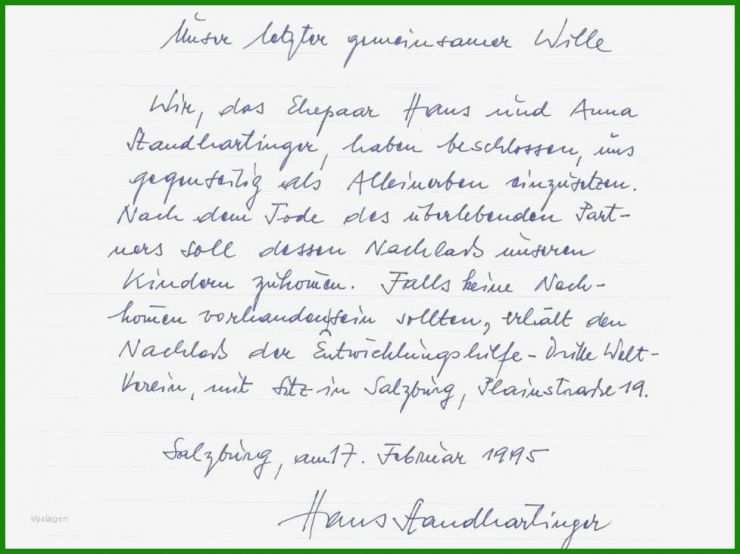 Unser letzter gemeinsamer Wille
Wir, das Ehepaar Hans und Anna
Standhartinger, haben beschlossen, uns
gegenseitig als Alleinerben einzusetzen.
Nach dem Tode des überlebenden Part-
ners soll dessen Nachlaß unseren
Kindern zukom̅en. Falls keine Nach-
kom̅en vorhanden sein sollten, erhält den
Nachlaß der Entwicklungshilfe-Dritte Welt-
Verein, mit Sitz in Salzburg, Plainstraße 19.
Salzburg, am 17. Februar 1995
Hans Standhartinger
Vorlagen